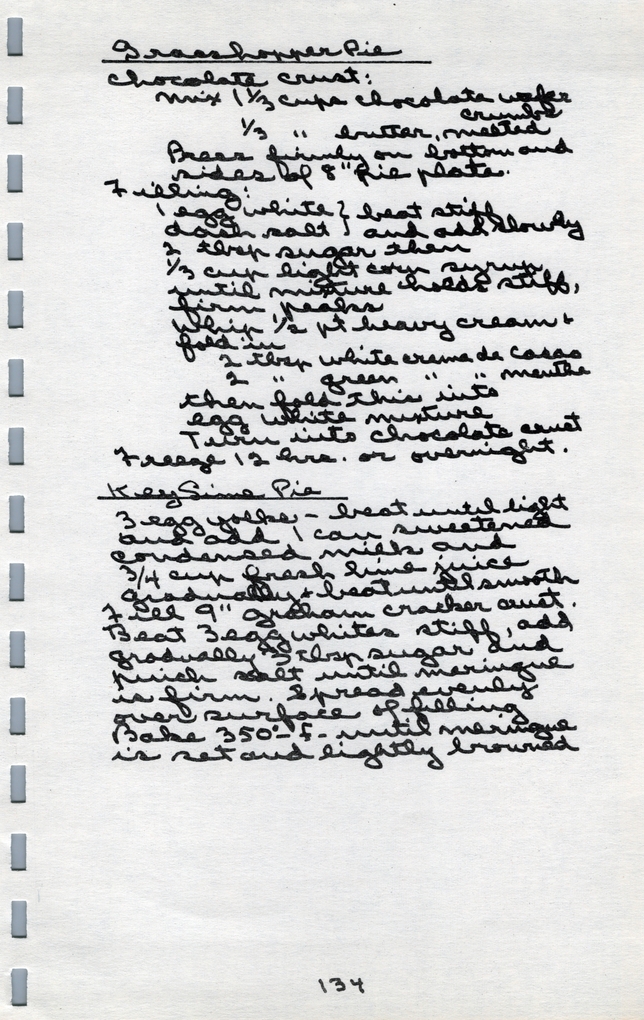 Grasshopper Pie
Chocolate crust:
mix 1 1/3 cups chocolate wafer
crumbs
1/3 " butter, melted
Press firmly on bottom and
sides of 8" pie plate.
Filling:
1 egg white } beat stiff
dash salt } and add slowly
2 tbsp sugar then
1/3 cup light corn syrup
until mixture holds stiff,
firm peaks
Whip 1/2 pt heavy cream +
fold in
2 tbsp white creme de cacao
2 " green " " menthe
then fold this into
egg white mixture
Turn into chocolate crust
Freeze 12 hrs. or overnight.
Key Lime Pie
3 egg yolks - beat until light
and add 1 can sweetened
condensed milk and
3/4 cup fresh lime juice
gradually + beat until smooth
Fill 9" graham cracker crust.
Beat 3 egg whites stiff, add
gradually 3 tbsp sugar and
pinch salt until meringue
is firm. Spread evenly
over surface of filling
Bake 350°-F- until meringue
is set and lightly browned
134